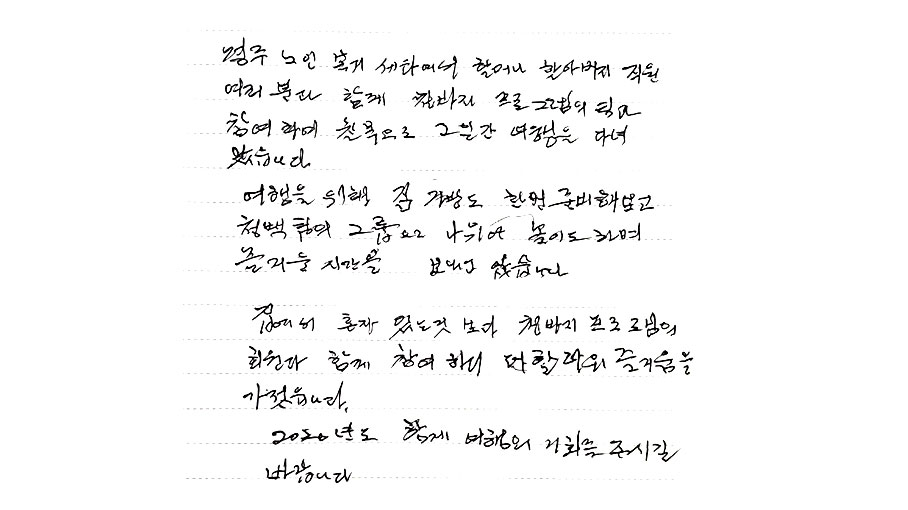 노인 복지 센타에서 할머니 할아버지 직원
여러 분과 함께 프로그램의
참여 하여 으로 2일간 여행을 다녀
왔습니다.
여행을 위해 짐 가방도 한번 준비해보고
청백 그룹으로 나뉘어 놀이도 하며
즐거운 시간을 보내고 왔습니다
집에서 혼자 있는것 보다
회원과 함께 참여 하니 즐거움을
가졌습니다.
2020년도 함께 여행의 기회를 주시길
바랍니다